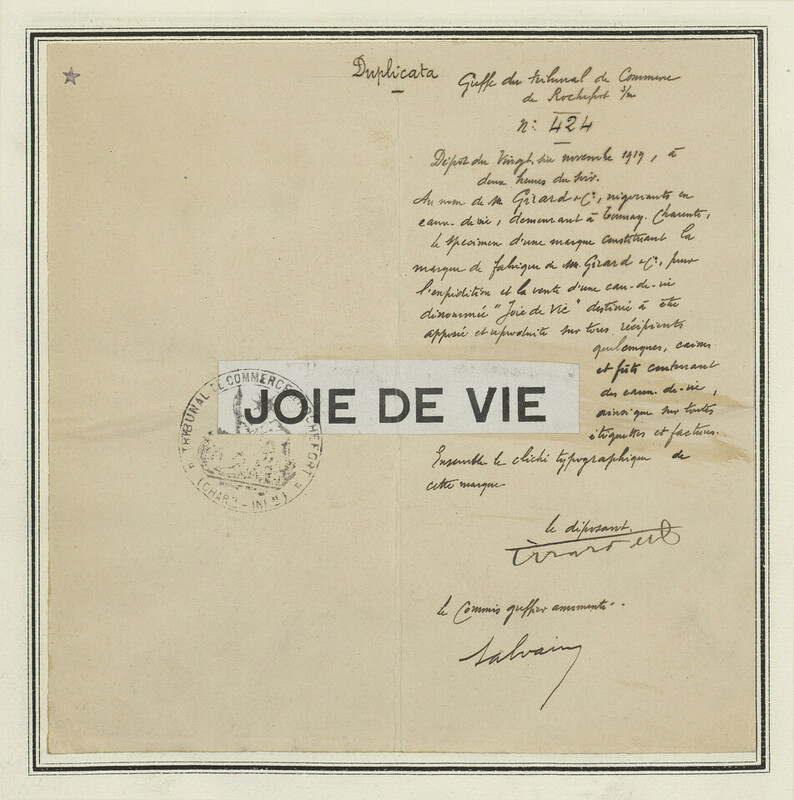 Duplicata
Greffe du tribunal de Commerce
de Rochefort s/m
N: 424
Dépôt du Vingt six novembre 1919, à
deux heures du soir.
Au nom de M. Girard & Cie, négociants en
eaux-de-vie, demeurant à Tonnay-Charente,
le specimen d'une marque constituant la
marque de fabrique de MM. Girard & Cie, pour
l'expédition et la vente d'une eau-de-vie
dénommée "Joie de Vie" destinée à être
apposée et reproduite sur tous récipients
quelconques, caisses
et fûts contenant
des eaux-de-vie,
ainsi que sur toutes
étiquettes et factures.
JOIE DE VIE
TRIBUNAL DE COMMERCE ROCHEFORT
(CHARTE-INFRE)
Ensemble le cliché typographique de
cette marque
le déposant.
le Commis greffier assermenté